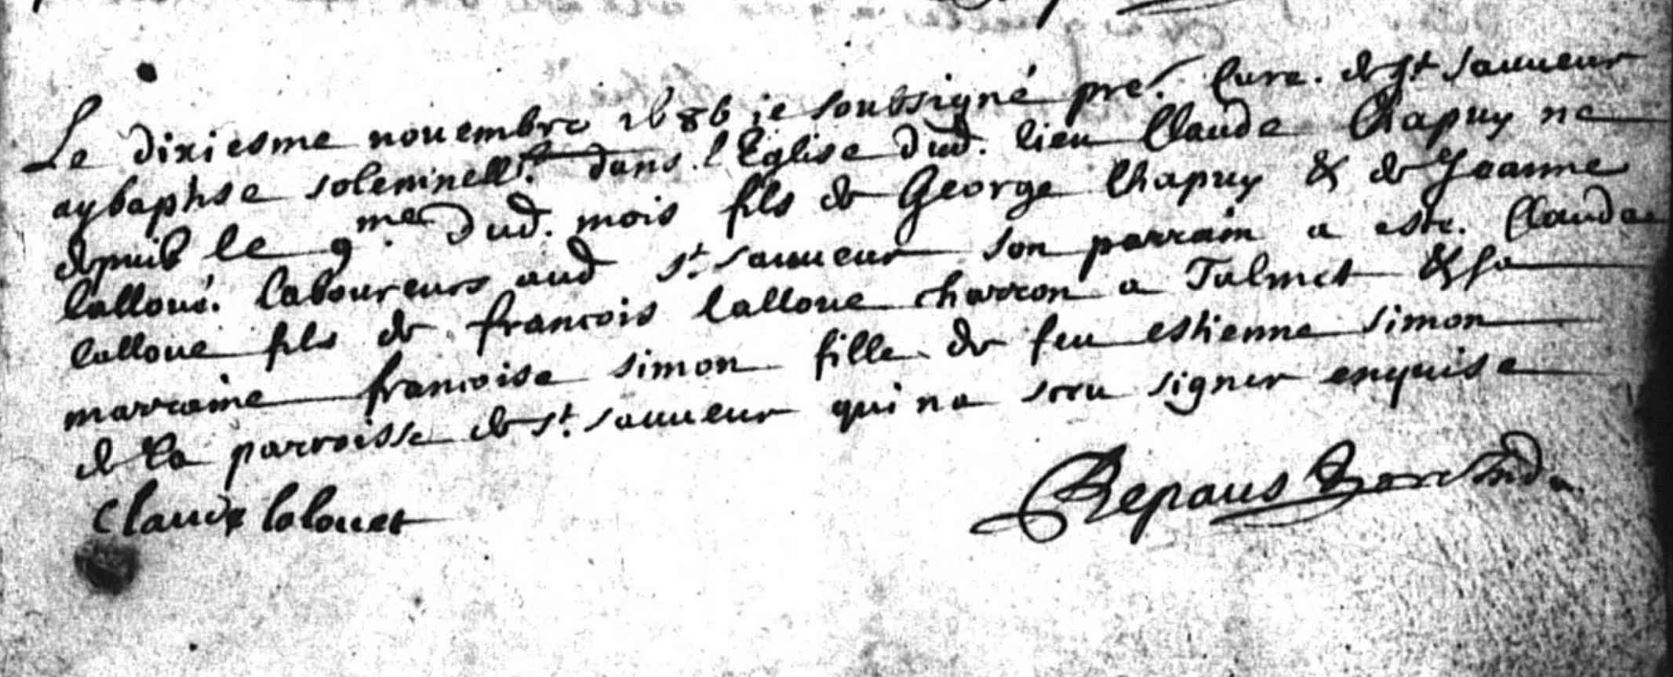 Le dixiesme novembre 1686 je soubsigné pre. Cure. de st sauveur
ay baptise solemnellt. dans l'Eglise dud. lieu Claude Chapuy ne
depuis le 9me. dud. mois fils de George Chapuy & de Jeanne
lalloué. laboureurs aud st. sauveur son parrain a este. Claude
lalloue fils de francois lalloue charron a Talmet & sa
marraine francoise simon fille de feu estienne simon
de la parroisse de st. sauveur qui na sceu signer enquise
Claude lalouet
Repaus